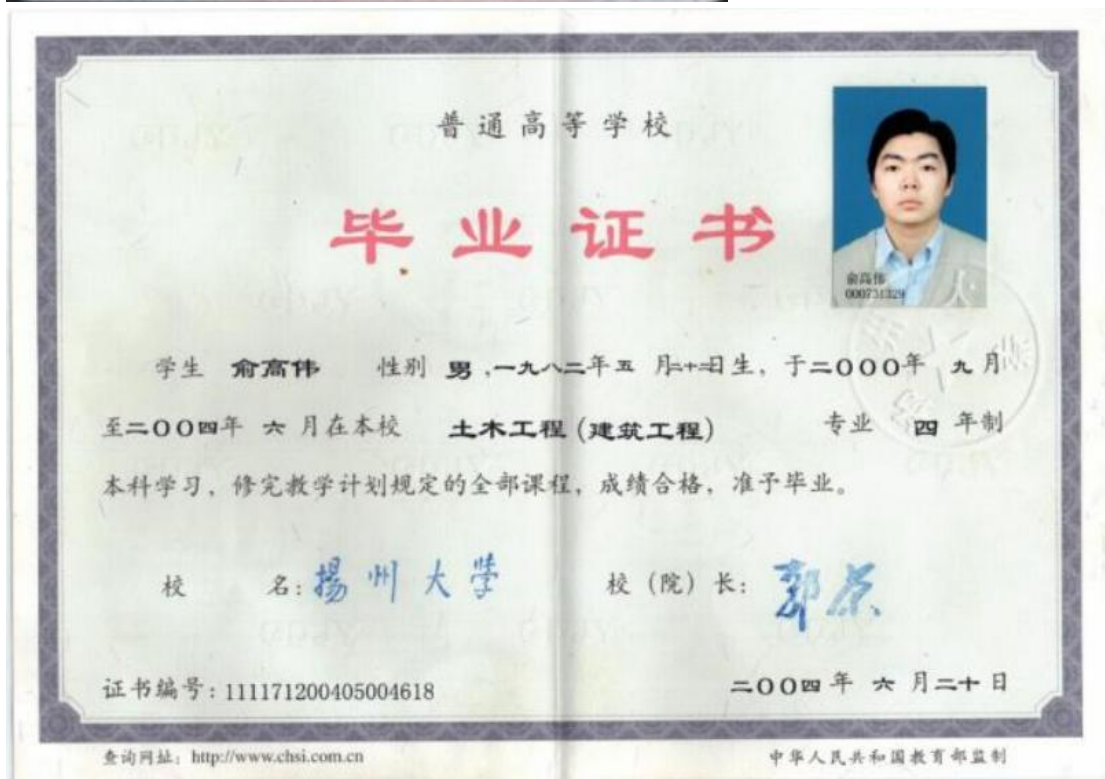 普通高等学校
毕业证书
俞高伟
000731329
学生 俞高伟 性别 男,一九八二年五月二十二日生,于二〇〇〇年 九月
至二〇〇四年 六 月在本校 土木工程(建筑工程) 专业 四 年制
本科学习,修完教学计划规定的全部课程,成绩合格,准予毕业。
校 名:揚州大學 校(院)长:郭荣
证书编号:111171200405004618 二〇〇四年 六 月二十日
查询网址:http://www.chsi.com.cn 中华人民共和国教育部监制